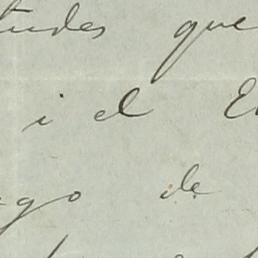 tudes que
i el E
go de